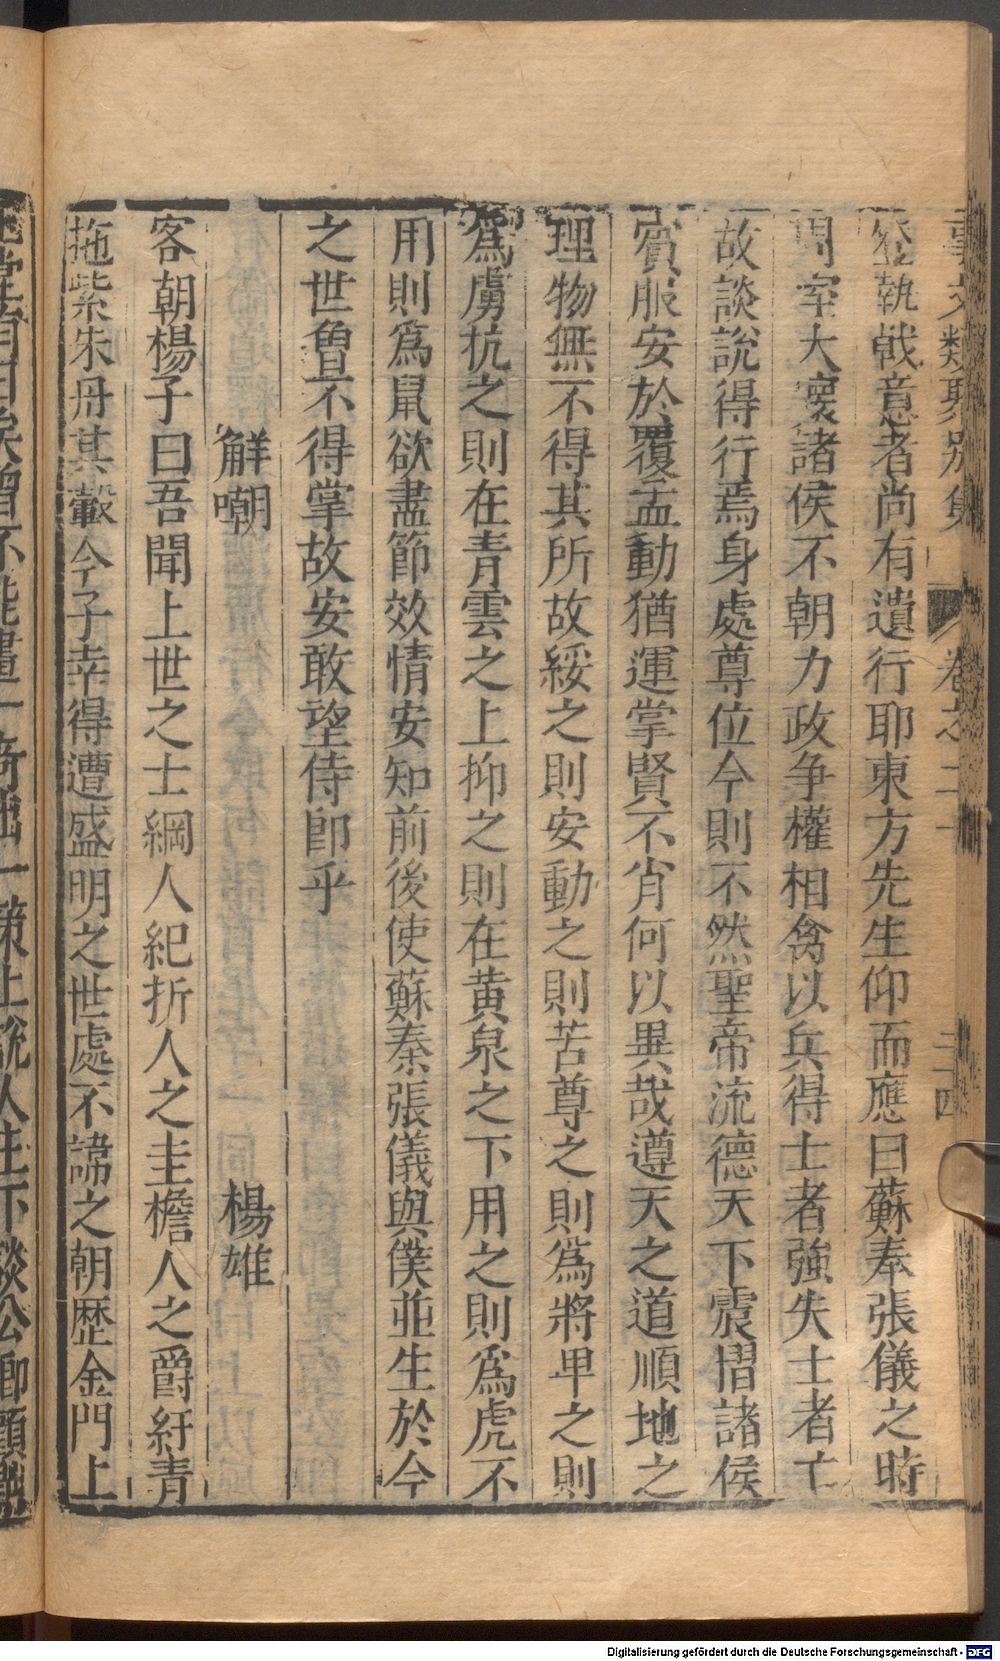 事文類聚別集 卷之二十 三十四
登執戟意者尚有遺行耶東方先生仰而應曰蘇秦張儀之時
周室大壞諸侯不朝力政爭權相禽以兵得士者強失士者亡
故談說得行焉身處尊位今則不然聖帝流德天下震慴諸侯
賓服安於覆盂動猶運掌賢不肖何以異哉遵天之道順地之
理物無不得其所故綏之則安動之則苦尊之則爲將卑之則
爲虜抗之則在青雲之上抑之則在黃泉之下用之則爲虎不
用則爲鼠欲盡節效情安知前後使蘇秦張儀與僕並生於今
之世曾不得掌故安敢望侍郎乎
解嘲 楊雄
客朝楊子曰吾聞上世之士綱人紀折人之圭檐人之爵紆青
拖紫朱丹其轂今子幸得遭盛明之世處不諱之朝歷金門上
玉堂有日矣曾不能畫一奇出一策上說人主下談公卿顧
Digitalisierung gefördert durch die Deutsche Forschungsgemeinschaft - DFG